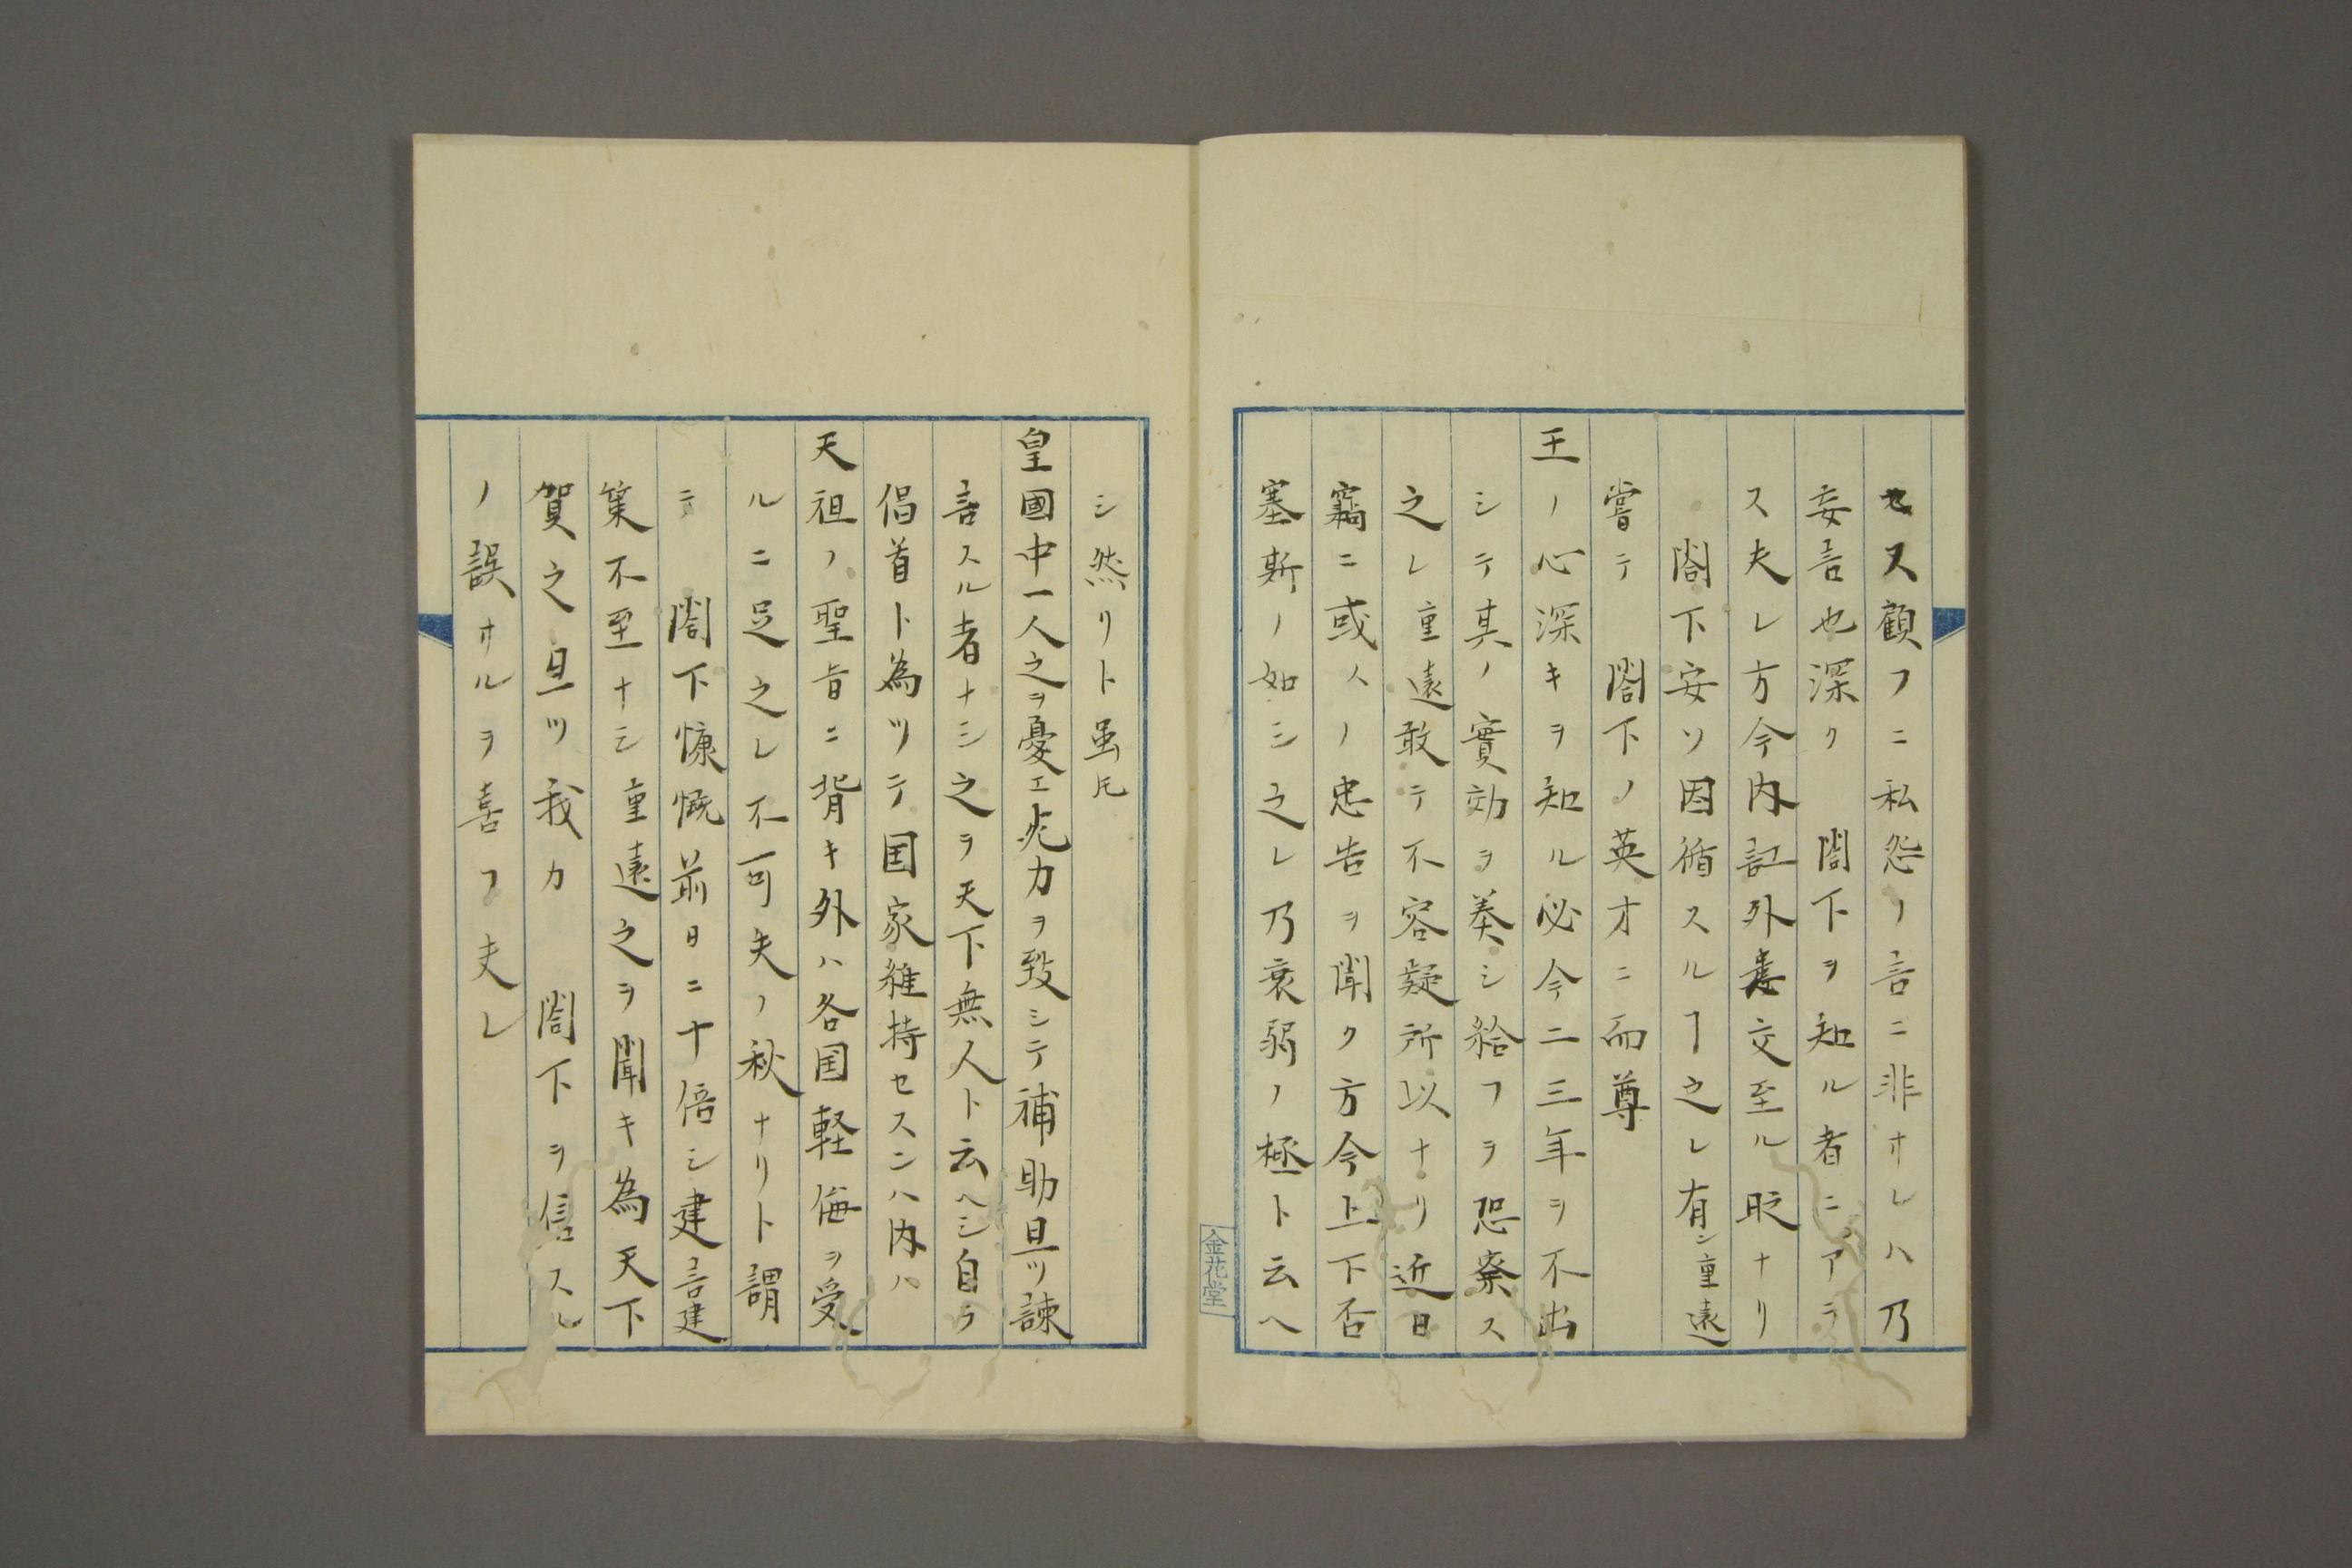 セス顧フニ私怨ノ言ニ非サレハ乃
妄言也深ク　閤下ヲ知ル者ニアラ
ス夫レ方今内訌外患交至ル眀ナリ
閤下安ソ因循スルヿ之レ有ン重遠
嘗テ　閤下ノ英才ニ而尊
王ノ心深キヲ知ル必今二三年ヲ不出
シテ其ノ實効ヲ奏シ給フヲ恐察ス
之レ重遠敢テ不容疑所以ナリ近日
竊ニ或人ノ忠告ヲ聞ク方今上下否
塞斯ノ如シ之レ乃衰弱ノ極ト云ヘ
シ然リト虽𪜈
皇國中一人之ヲ憂エ死力ヲ致シテ補助且ツ諫
言スル者ナシ之ヲ天下無人ト云ヘシ自ラ
倡首ト為ツテ国家維持セスンハ内ハ
天祖ノ聖旨ニ背キ外ハ各国軽侮ヲ受
ルニ足之レ不可失ノ秋ナリト謂
テ　閤下慷慨前日ニ十倍シ建言建
策不至ナシ重遠之ヲ聞キ為天下
賀之且ツ我カ　閤下ヲ信スル
ノ誤サルヲ喜フ夫レ
金花堂